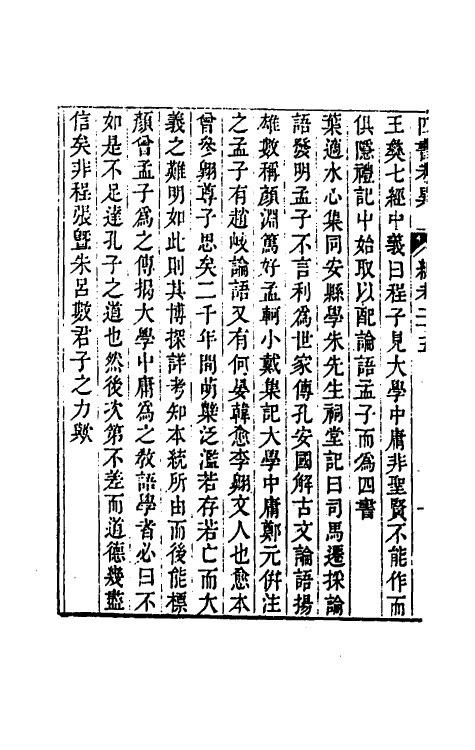 四書考異　總考二十五
王奕七經中義曰程子見大學中庸非聖賢不能作而
俱隱禮記中始取以配論語孟子而爲四書
葉適水心集同安縣學朱先生祠堂記曰司馬遷採論
語發明孟子不言利爲世家傳孔安國解古文論語揚
雄數稱顏淵篤好孟軻小戴集記大學中庸鄭元併注
之孟子有趙岐論語又有何晏韓愈李翺文人也愈本
曾參翺尊子思矣二千年間萌蘖泛濫若存若亡而大
義之難明如此則其博探詳考知本統所由而後能標
顏曾孟子爲之傳揭大學中庸爲之敎語學者必曰不
如是不足達孔子之道也然後次第不差而道德幾盡
信矣非程張曁朱呂數君子之力歟